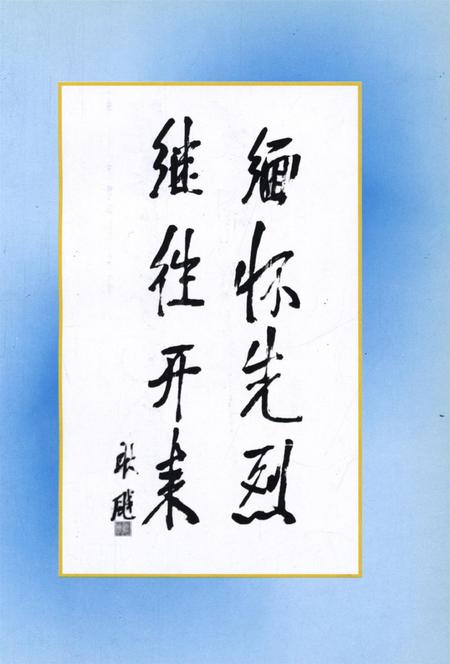 缅怀先烈
继往开来
耿飚